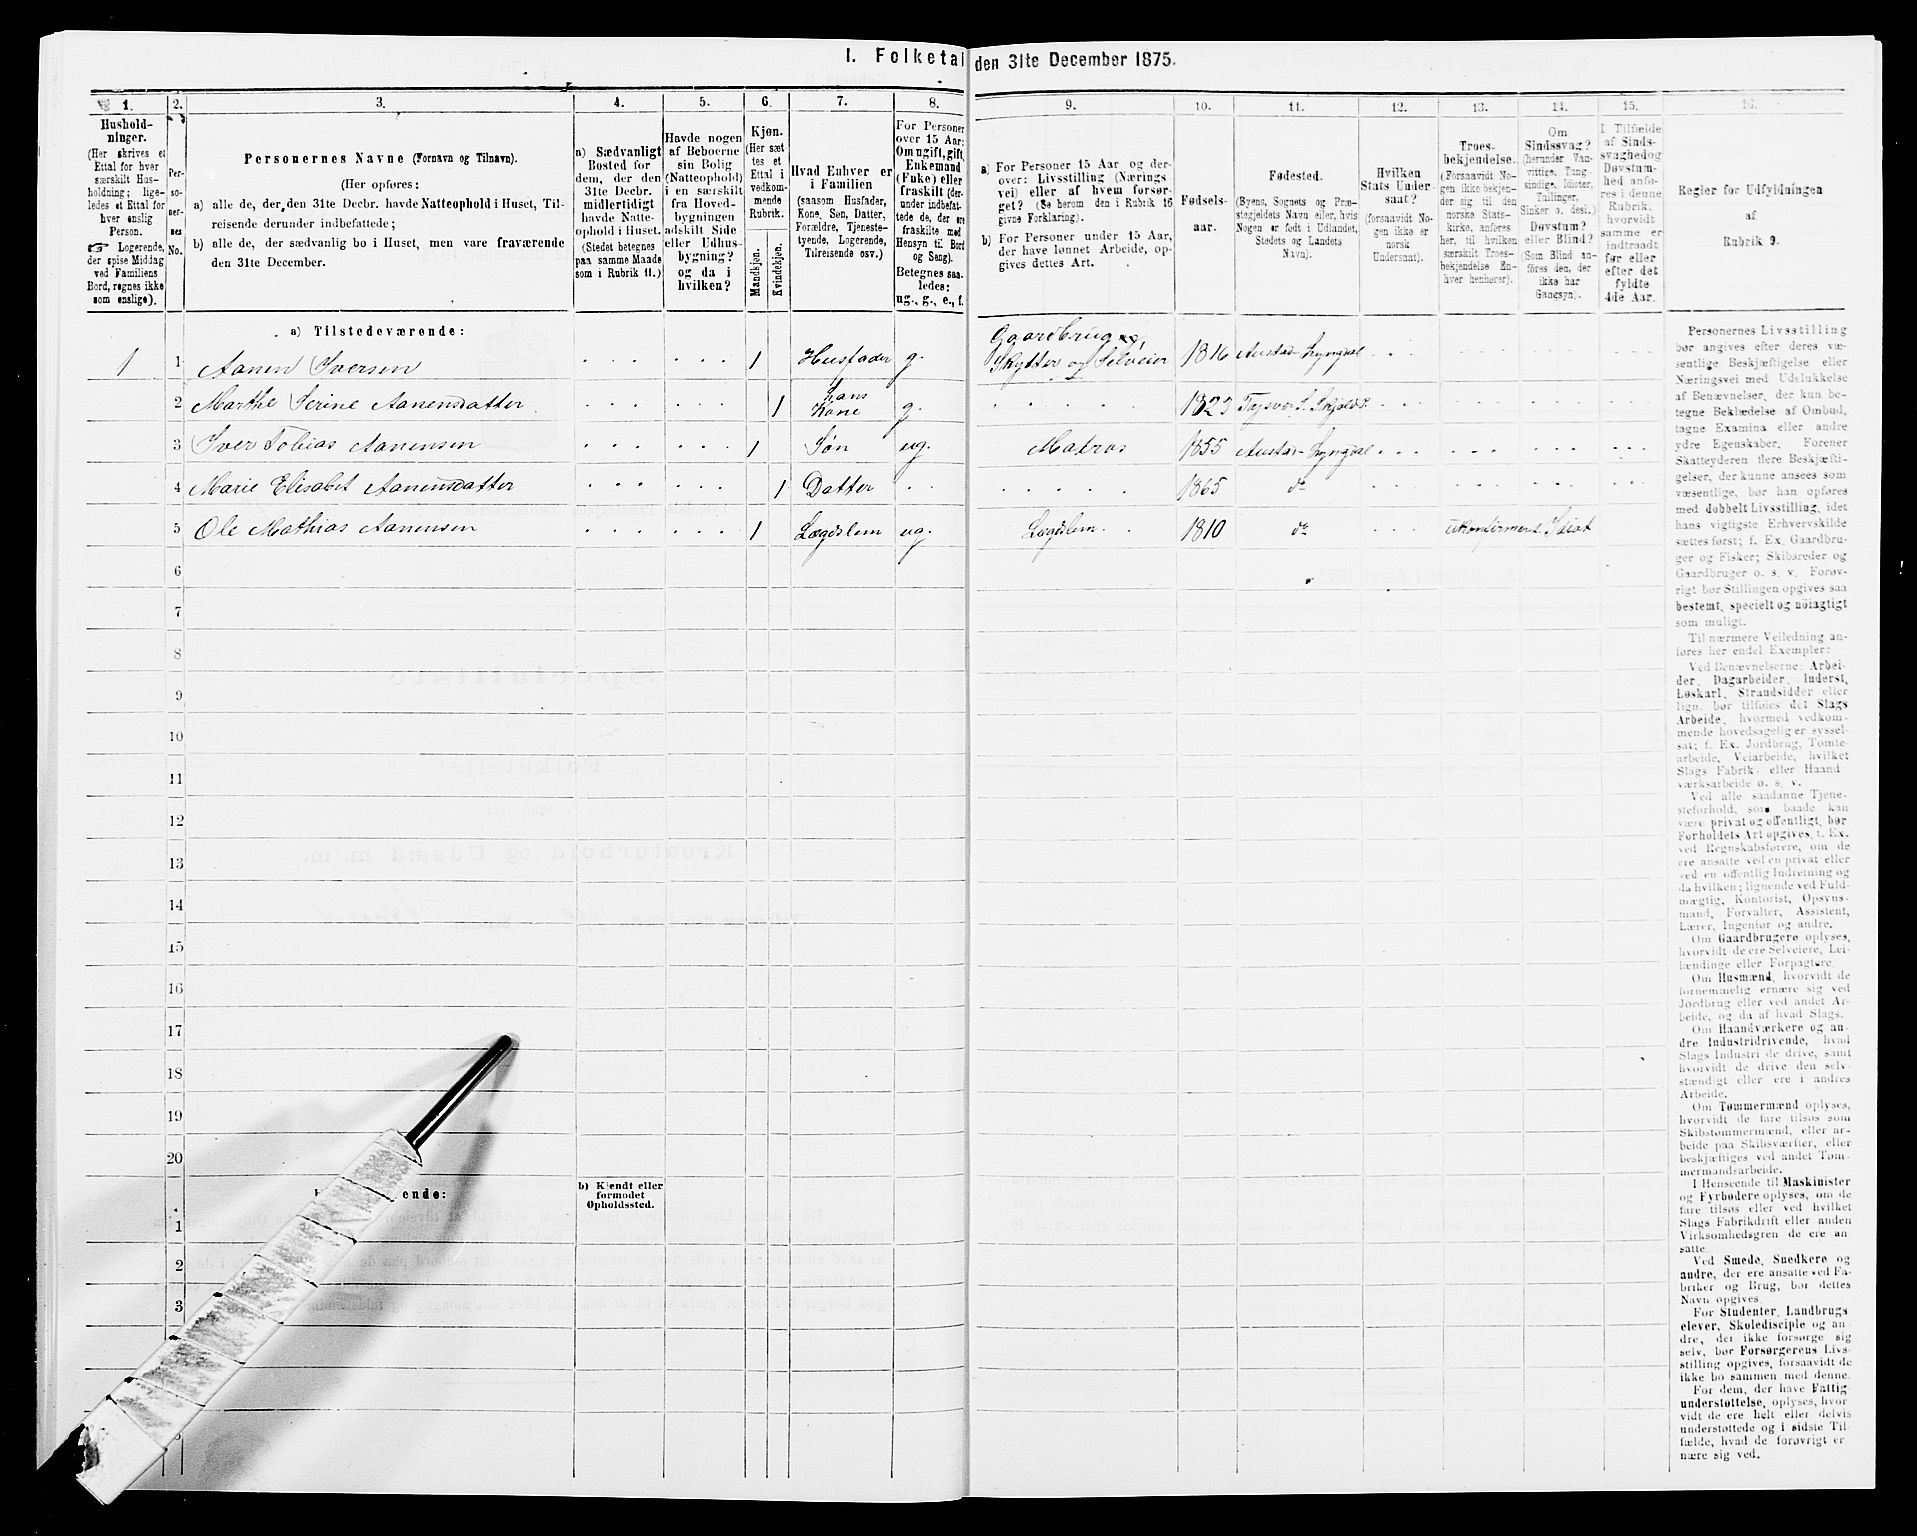 I. Folketal den 31te December 1875.
1. 2. 3. 4. 5. 6. 7. 8. 9. 10. 11. 12. 13. 14. 15. 16.
Hushold-
ninger.
(Her skrives et
Ettal for hver
særskilt Hus-
holdning; lige-
ledes et Ettal for
hver enslig
Person.
☞ Logerende,
der spise Middag
ved Familiens
Bord, regnes ikke
som enslige).
Per-
so-
ner-
nes
No.
Personernes Navne (Fornavn og Tilnavn).
(Her opføres:
a) alle de, der den 31te Decbr. havde Natteophold i Huset, Til-
reisende derunder indbefattede;
b) alle de, der sædvanlig bo i Huset, men vare fraværende
den 31te December.)
a) Sædvanligt
Bosted for
dem, der den
31te Decbr.
midlertidigt
havde Natte-
ophold i Huset.
(Stedet betegnes
paa samme Maade
som i Rubrik 11.)
Havde nogen
af Beboerne
sin Bolig
(Natteophold)
i en særskilt
fra Hoved-
bygningen
adskilt Side
eller Udhus-
bygning?
og da i
hvilken?
Kjøn.
(Her sæt-
tes et
Ettal i
vedkom-
mende
Rubrik.
Mandkjøn.
Kvindekjøn.
Hvad Enhver er
i Familien
(saasom Husfader,
Kone, Søn, Datter,
Forældre, Tjeneste-
tyende, Logerende,
Tilreisende osv.)
For Personer
over 15 Aar:
Om ugift, gift,
Enkemand
(Enke) eller
fraskilt (der-
under indbefat-
tede de, der ere
fraskilte med
Hensyn til Bord
og Seng).
Betegnes saa-
ledes:
ug., g., e., f.
a) For Personer 15 Aar og der-
over: Livsstilling (Nærings-
vei) eller af hvem forsør-
get? (Se herom den i Rubrik 16
givne Forklaring).
b) For Personer under 15 Aar,
der have lønnet Arbeide, op-
gives dettes Art.
Fødsels-
aar.
Fødested.
(Byens, Sognets og Præ-
stegjeldets Navn eller, hvis
Nogen er født i Udlandet,
Stedets og Landets
Navn).
Hvilken
Stats Under-
saat?
(forsaavidt No-
gen ikke er
norsk
Undersaat).
Troes-
bekjendelse.
(Forsaavidt No-
gen ikke bekjen-
der sig til den
norske Stats-
kirke, anføres
her, til hvilken
særskilt Troes-
bekjendelse En-
hver henhører).
Om
Sindssvag?
(herunder Van-
vittige, Tung-
sindige, Idioter,
Tullinger,
Sinker o. desl.)
Døvstum?
eller Blind?
(Som Blind an-
føres den, der
ikke har
Gangsyn).
I Tilfælde
af Sinds-
svaghed og
Døvstum-
hed anfø-
res i denne
Rubrik,
hvorvidt
samme er
indtraadt
før eller
efter det
fyldte
4de Aar.
Regler for Udfyldningen
af
Rubrik 9.
a) Tilstedeværende:
1 1 Aanen Iversen 1 Husfader g. Gaardbruger, Skytter og Selveier 1816 Austad-Lyngdal
2 Marthe Serine Aanensdatter 1 hans Kone g. 1823 Tysvær S. Skjold
3 Iver Tobias Aanensen 1 Søn ug. Matros 1855 Austad-Lyngdal
4 Marie Elisabet Aanensdatter 1 Datter 1865 do
5 Ole Mathias Aanensen 1 Lægdslem ug. Lægdslem 1810 do ukonfirmeret Idiot
6
7
8
9
10
11
12
13
14
15
16
17
18
19
20
ende:
b) Kjendt eller
formodet
Opholdssted.
1
2
3
Personernes Livsstilling
bør angives efter deres væ-
sentlige Beskjæftigelse eller
Næringsvei med Udelukkelse
af Benævnelser, der kun be-
tegne Beklædelse af Ombud,
tagne Examina eller andre
ydre Egenskaber. Forener
Skatteyderen flere Beskjæfti-
gelser, der kunne ansees som
væsentlige, bør han opføres
med dobbelt Livsstilling, idet
hans vigtigste Erhvervskilde
sættes først; f. Ex. Gaardbru-
ger og Fisker; Skibsreder og
Gaardbruger o. s. v. Forøv-
rigt bør Stillingen opgives saa
bestemt, specielt og nöiagtigt
som muligt.
Til nærmere Veiledning an-
føres her endel Exempler:
Ved Benævnelserne: Arbei-
der, Dagarbeider, Inderst,
Løskarl, Strandsidder eller
lign. bør tilføies det Slags
Arbeide, hvormed vedkom-
mende hovedsagelig er syssel-
sat; f. Ex. Jordbrug, Tomte-
arbeide, Veiarbeide, hvilket
Slags Fabrik- eller Haand-
værksarbeide o. s. v.
Ved alle saadanne Tjene-
steforhold, som baade kan
være privat og offentligt, bør
Forholdets Art opgives, t. Ex.
ved Regnskabsførere, om de
ere ansatte ved en privat eller
ved en offentlig Indretning og
da hvilken; lignende ved Fuld-
mægtig, Kontorist, Opsyns-
mand, Forvalter, Assistent,
Lærer, Ingeniør og andre.
Om Gaardbrugere oplyses,
hvorvidt de ere Selveiere, Lei-
lændinge eller Forpagtere.
Om Husmænd, hvorvidt de
fornemmelig ernære sig ved
Jordbrug eller ved andet Ar-
beide, og da af hvad Slags.
Om Haandværkere og an-
dre Industridrivende, hvad
Slags Industri de drive, samt
hvorvidt de drive den selv-
stændigt eller ere i andres
Arbeide.
Om Tømmermænd oplyses,
hvorvidt de fare tilsøs som
Skibstømmermænd, eller ar-
beide paa Skibsværfter, eller
beskjæftiges ved andet Tøm-
mermandsarbeide.
I Henseende til Maskinister
og Fyrbødere oplyses, om de
fare tilsøs eller ved hvilket
Slags Fabrikdrift eller anden
Virksomhedsgren de ere an-
satte.
Ved Smede, Snedkere og
andre, der ere ansatte ved Fa-
briker og Brug, bør dettes
Navn opgives.
For Studenter, Landbrugs-
elever, Skoledisciple og an-
dre, der ikke forsørge sig
selv, bør Forsørgerens Livs-
stilling opgives, forsaavidt de
ikke bo sammen med denne.
For dem, der have Fattig-
understøttelse, oplyses, hvor-
vidt de ere helt eller delvis
understøttede og i sidste Til-
fælde, hvad de forøvrigt er-
nære sig ved.